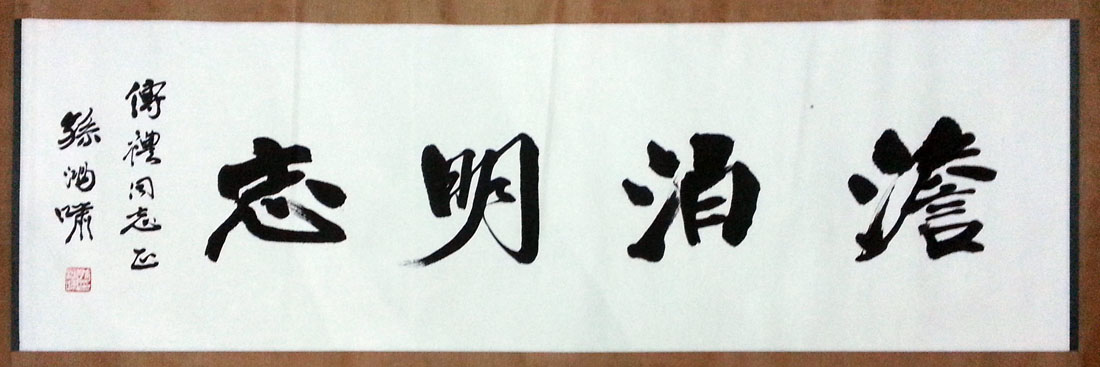 澹泊明志
傳禮同志正
孫鴻嘯